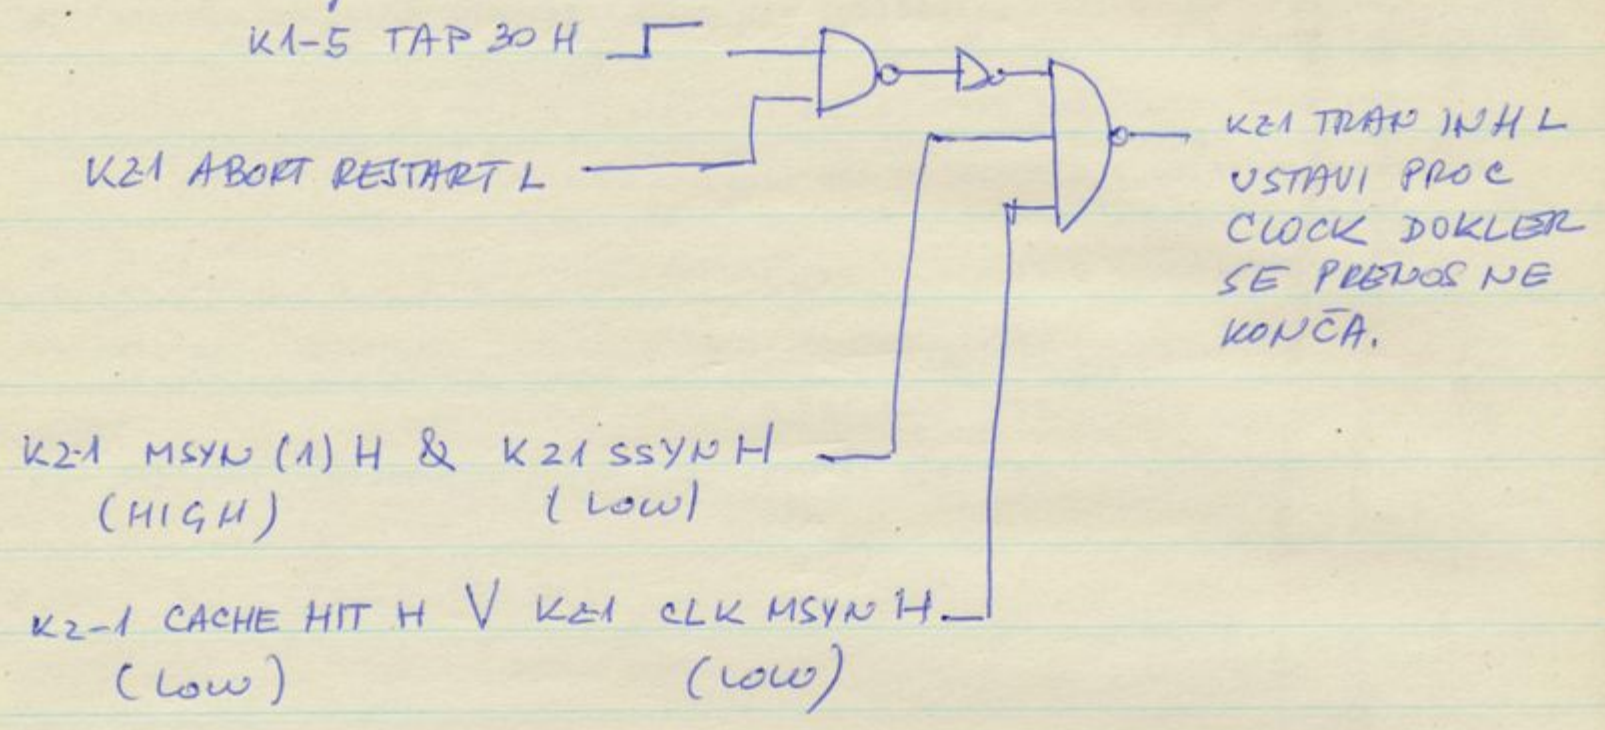 K1-5 TAP 30 H
K2-1 ABORT RESTART L
K2-1 TRAN INH L
USTAVI PROC
CLOCK DOKLER
SE PRENOS NE
KONČA.
K2-1 MSYN (1) H & K2 1 SSYN H
(HIGH) (LOW)
K2-1 CACHE HIT H V K2-1 CLK MSYN H
(LOW) (LOW)